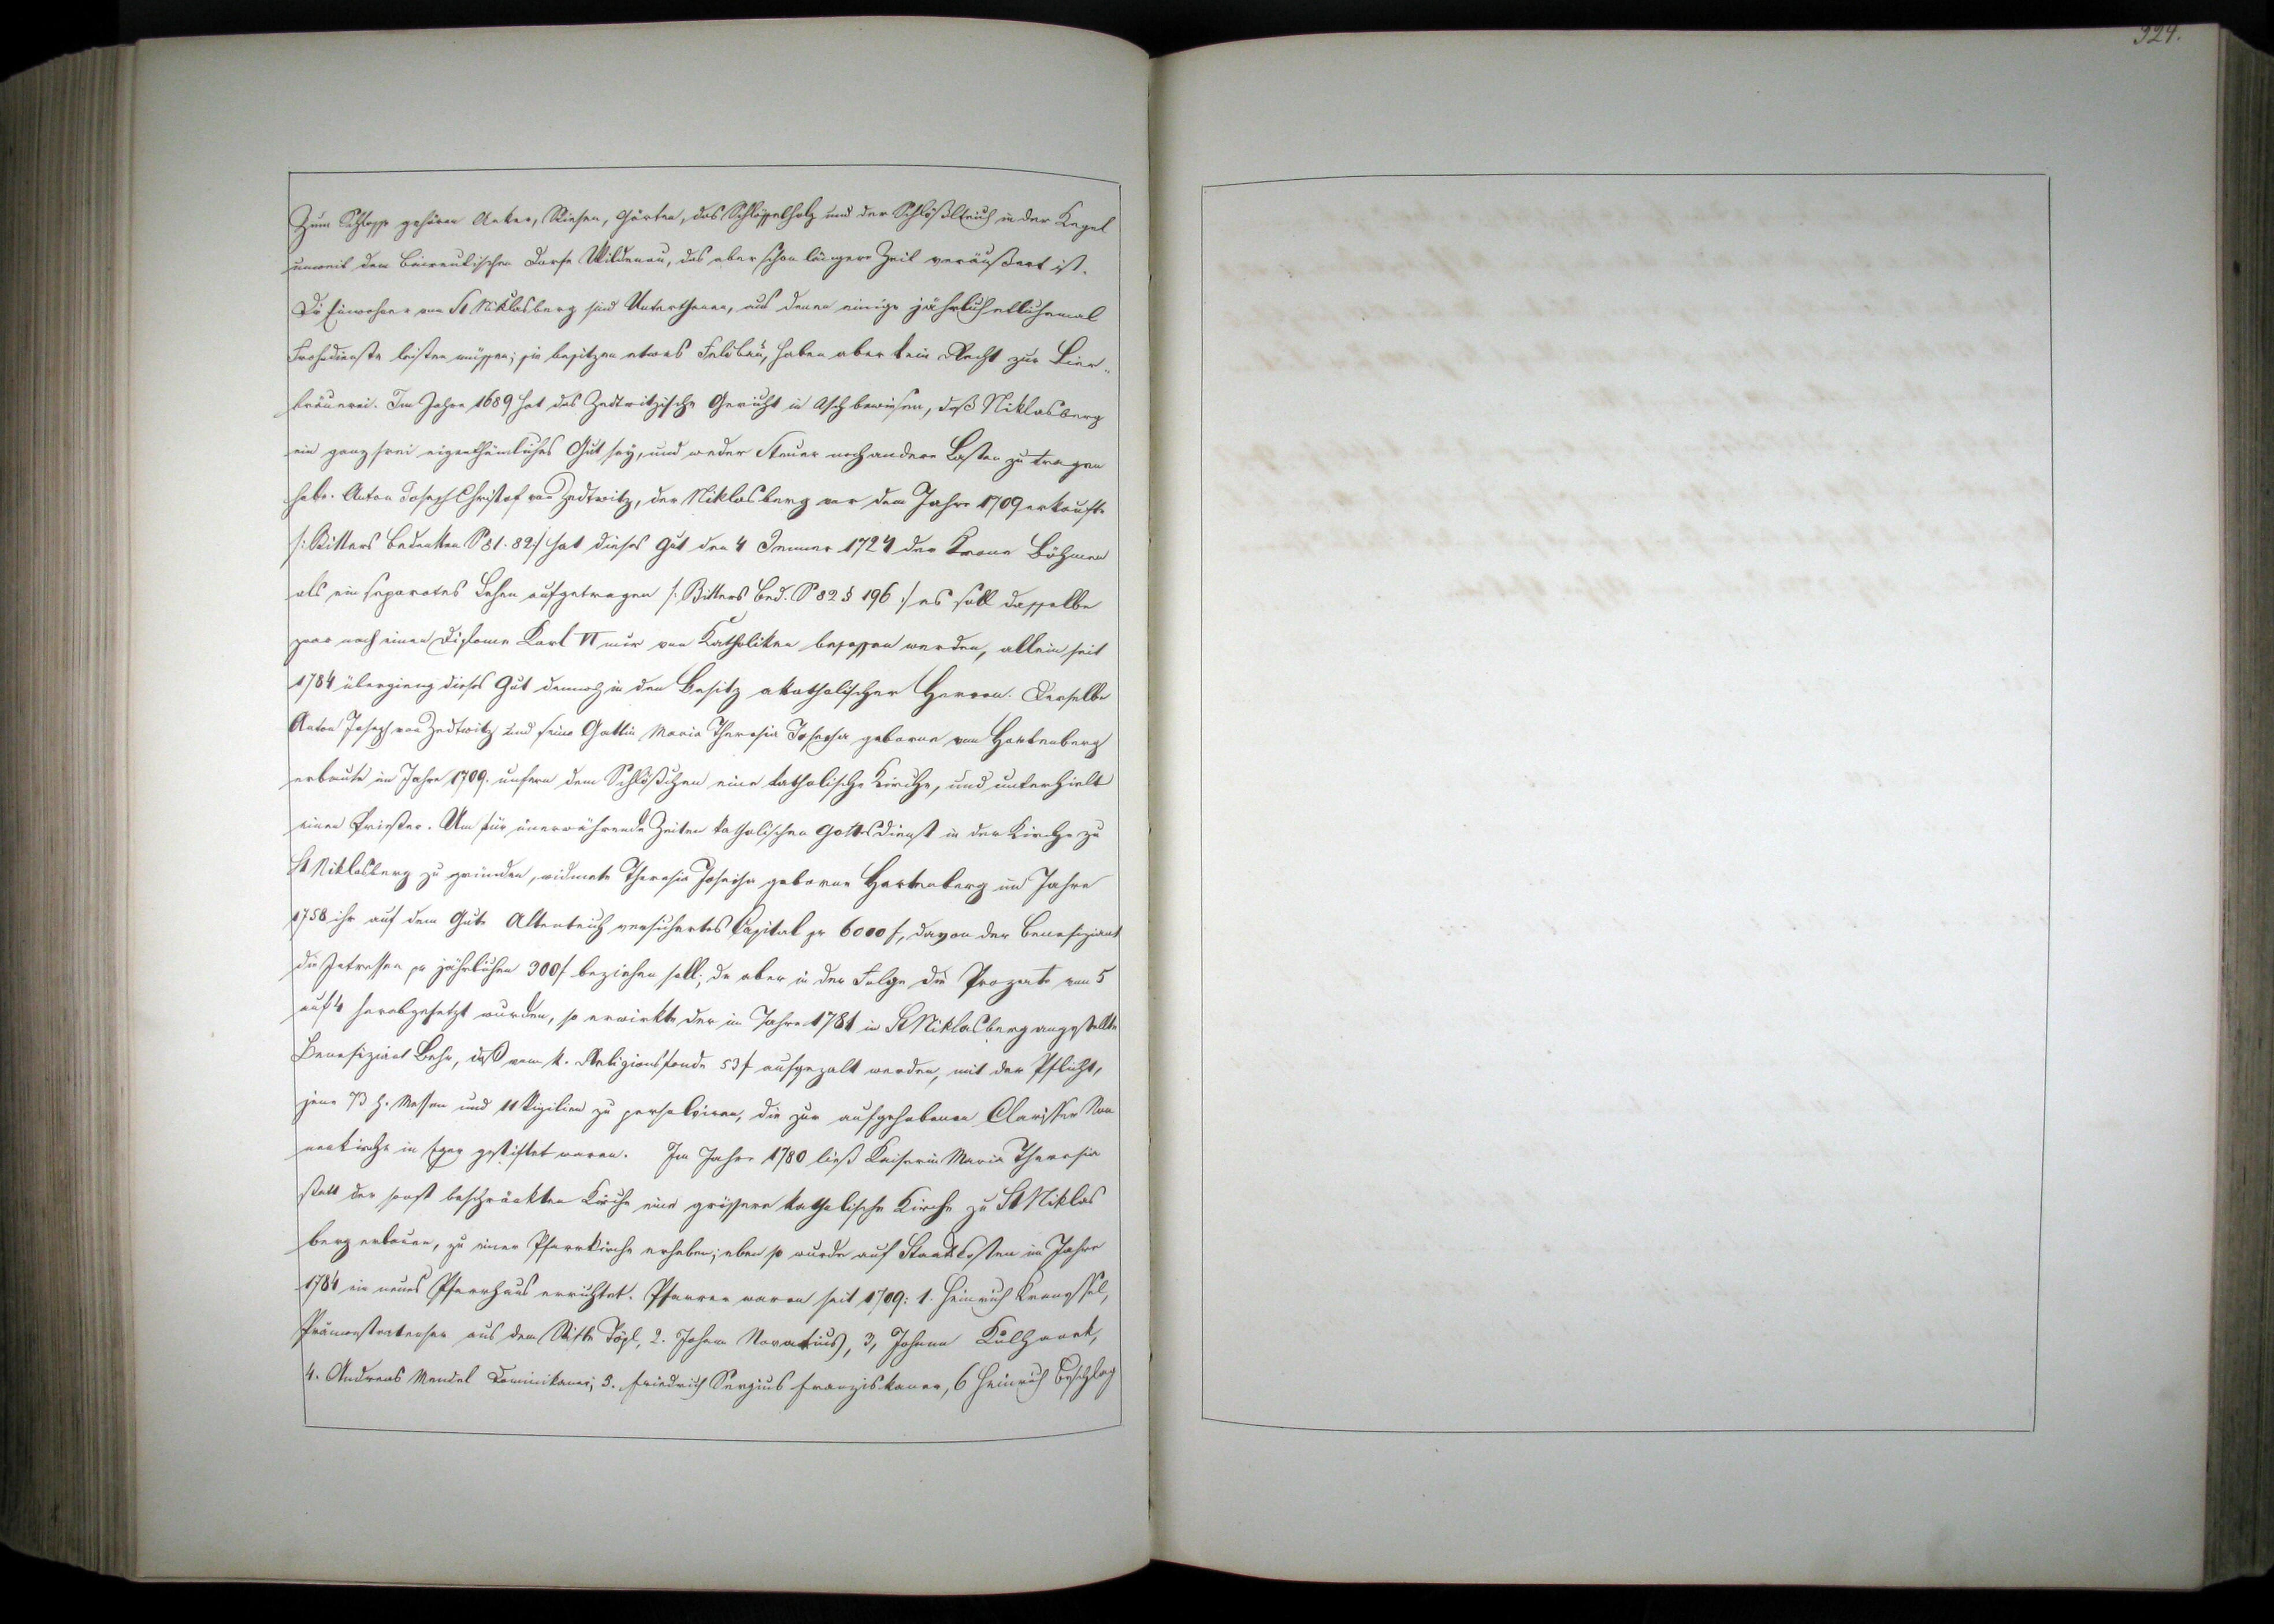 324.
Zum Schlosse gehören Aeker, Wiesen, Gärten, das Schlösselholz und der Schlößlteich in der Kegel
unweit dem baireutischen Dorfe Wildenau, das aber schon längere Zeit veräußert ist.
Die Einwohner von St Niklasberg sind Unterthanen, aus denen einige jährlich etlichemal
Frohndienste leisten müssen; sie besitzen etwas Feldbau, haben aber kein Recht zur Bier-
bräuerei. Im Jahre 1689 hat das Zedtwitzische Gericht in Asch bewiesen, daß Niklasberg
ein ganz frei eigenthümliches Gut sey, und weder Steuer noch andere Lasten zu tragen
habe. Anton Joseph Christof von Zedtwitz, der Niklasberg vor dem Jahre 1709 erkaufte
/: Bitters Bedenken S 81-82 :/ hat dieses Gut den 4 Jenner 1724 der Krone Böhmen
als ein separates Lehen aufgetragen /: Bitters Bed. S 82 § 196 :/ es soll dasselbe
zwar nach einem Diplome Karl VI nur von Katholiken besessen werden, allein seit
1784 übergieng dieses Gut dennoch in den Besitz akatholischer Herren. Derselbe
Anton Joseph von Zedtwitz und seine Gattin Maria Theresia Josepha geborne von Hartenberg
erbaute im Jahre 1709. unfern dem Schlößchen eine katholische Kirche, und unterhielt
einen Priester. Um für immerwährende Zeiten katholischen Gottesdienst in der Kirche zu
St Niklasberg zu gründen, widmete Theresia Josepha geborne Hartenberg im Jahre
1758 ihr auf dem Gute Altenteich versichertes Capital pr 6000 f, davon der Benefiziant
die Intressen pr jährlichen 300 f beziehen soll; da aber in der Folge die Prozente von 5
auf 4 herabgesetzt wurden, so erwirkte der im Jahre 1781 in St Niklasberg angestellte
Benefiziat Behr, daß vom k. Religionsfonde 53 f aufgezalt werden, mit der Pflicht,
jene 73 h. Messen und 11 Vigilien zu persolviren, die zur aufgehobenen Clarisser Non
nenkirche in Eger gestiftet waren. Im Jahre 1780 ließ Kaiserin Maria Theresia
statt der sonst beschränkten Kirche eine grössere katholische Kirche zu St Niklas
berg erbauen, zu einer Pfarrkirche erheben; eben so wurde auf Staatskosten im Jahre
1784 ein neues Pfarrhaus errichtet. Pfarrer waren seit 1709: 1. Heinrich
Prämonstratenser aus dem Stifte Töpl, 2. Johann Novatius, 3, Johann
4. Andreas Mendel Dominikaner, 5. Friedrich Sergius Franziskaner, 6 Heinrich